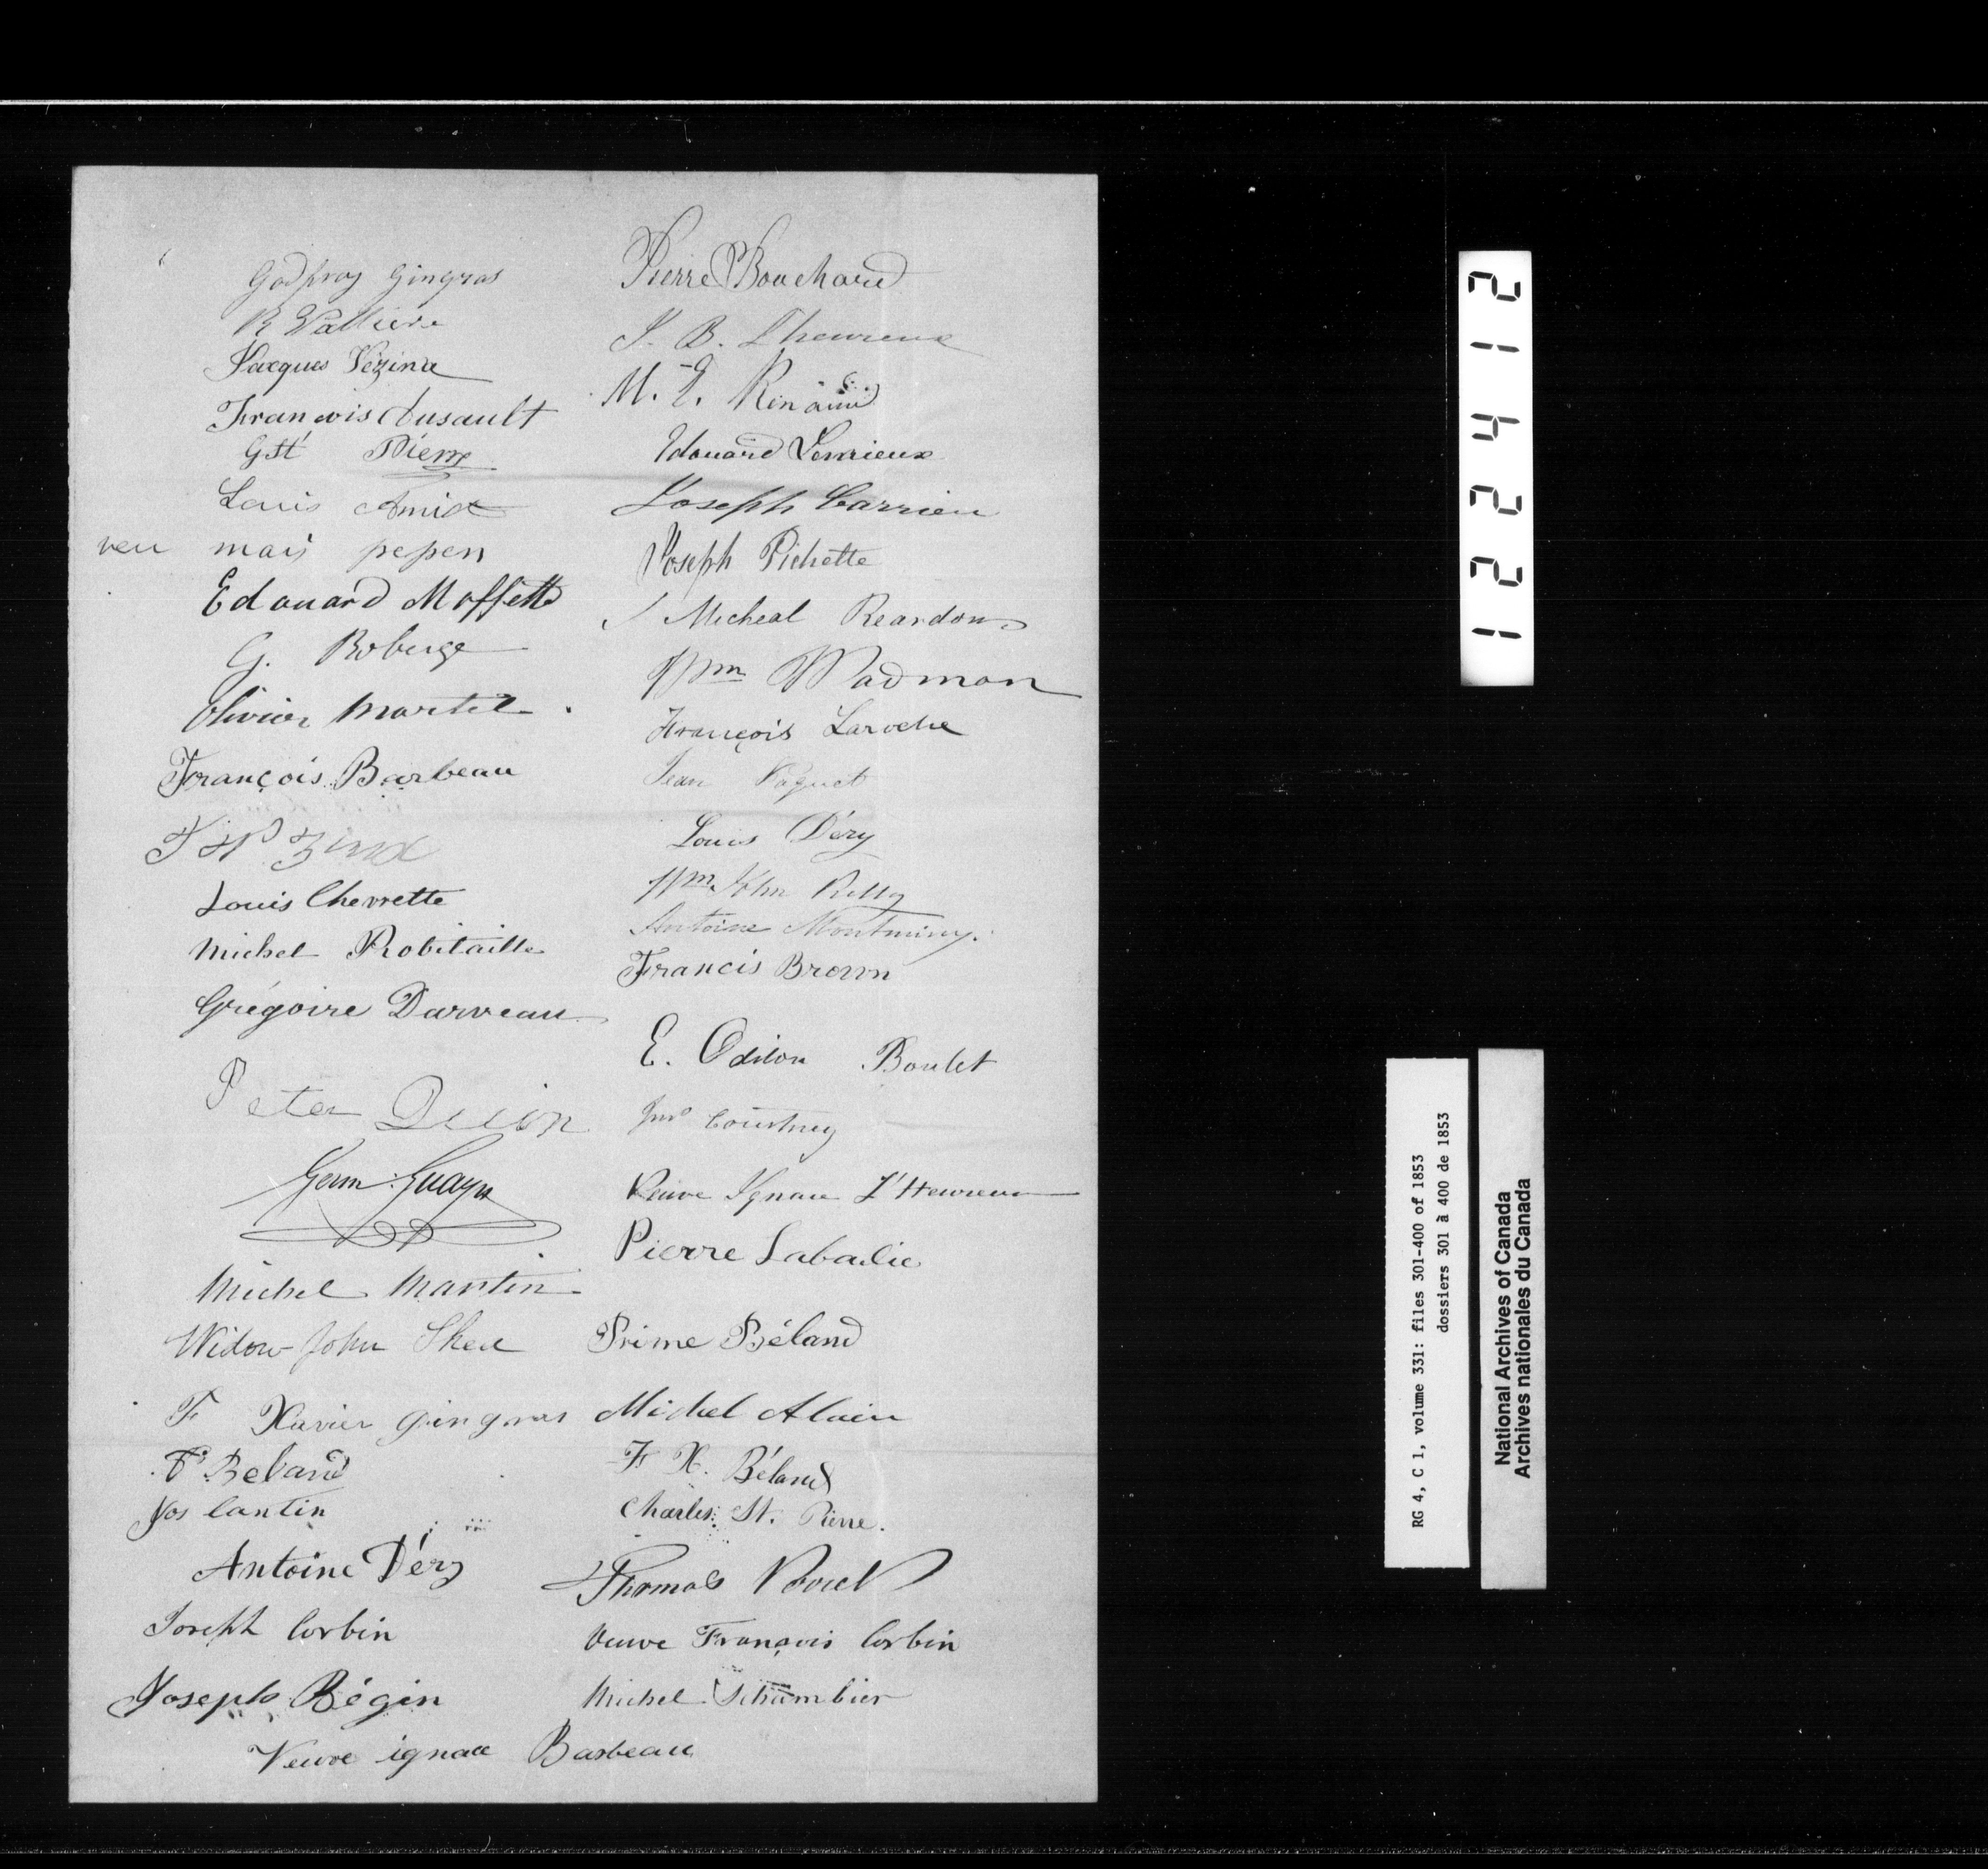 Godfroy Gingras
R Valliere
Jacques Vézina
François Dusault
Gst Pierre
Louis Amiot
veu mari pepen
Edouard Moffette
G. Roberge
Olivier Martel
François Barbeau
Louis Chevrette
Michel Robitaille
Grégoire Darveau
Peter
Germ. Guay
Michel Martin
Widow John Shea
F Xavier Gingras
F. Beland
Jos Cantin
Antoine Déry
Joseph Corbin
Joseph Bégin
Veuve ignace Barbeau
Pierre Bouchard
J. B. Lheureux
M. E. Renaud
Edouard Lemieux
Joseph Carrieu
Joseph Pichette
Micheal Reardon
Wm Wadman
François Laroche
Jean Paquet
Louis Déry
Wm John Kelly
Antoine Montminy.
Francis Brown
E. Odilon Boulet
Jno Courtney
Veuve Ignace L'Heureux
Pierre Labadie
Prime Béland
Michel Alain
F X. Béland
Charles St. Pierre.
Thomas
Veuve François Corbin
Michel Schambier
122412
RG 4, C 1, volume 331: files 301-400 of 1853
dossiers 301 à 400 de 1853
National Archives of Canada
Archives nationales du Canada